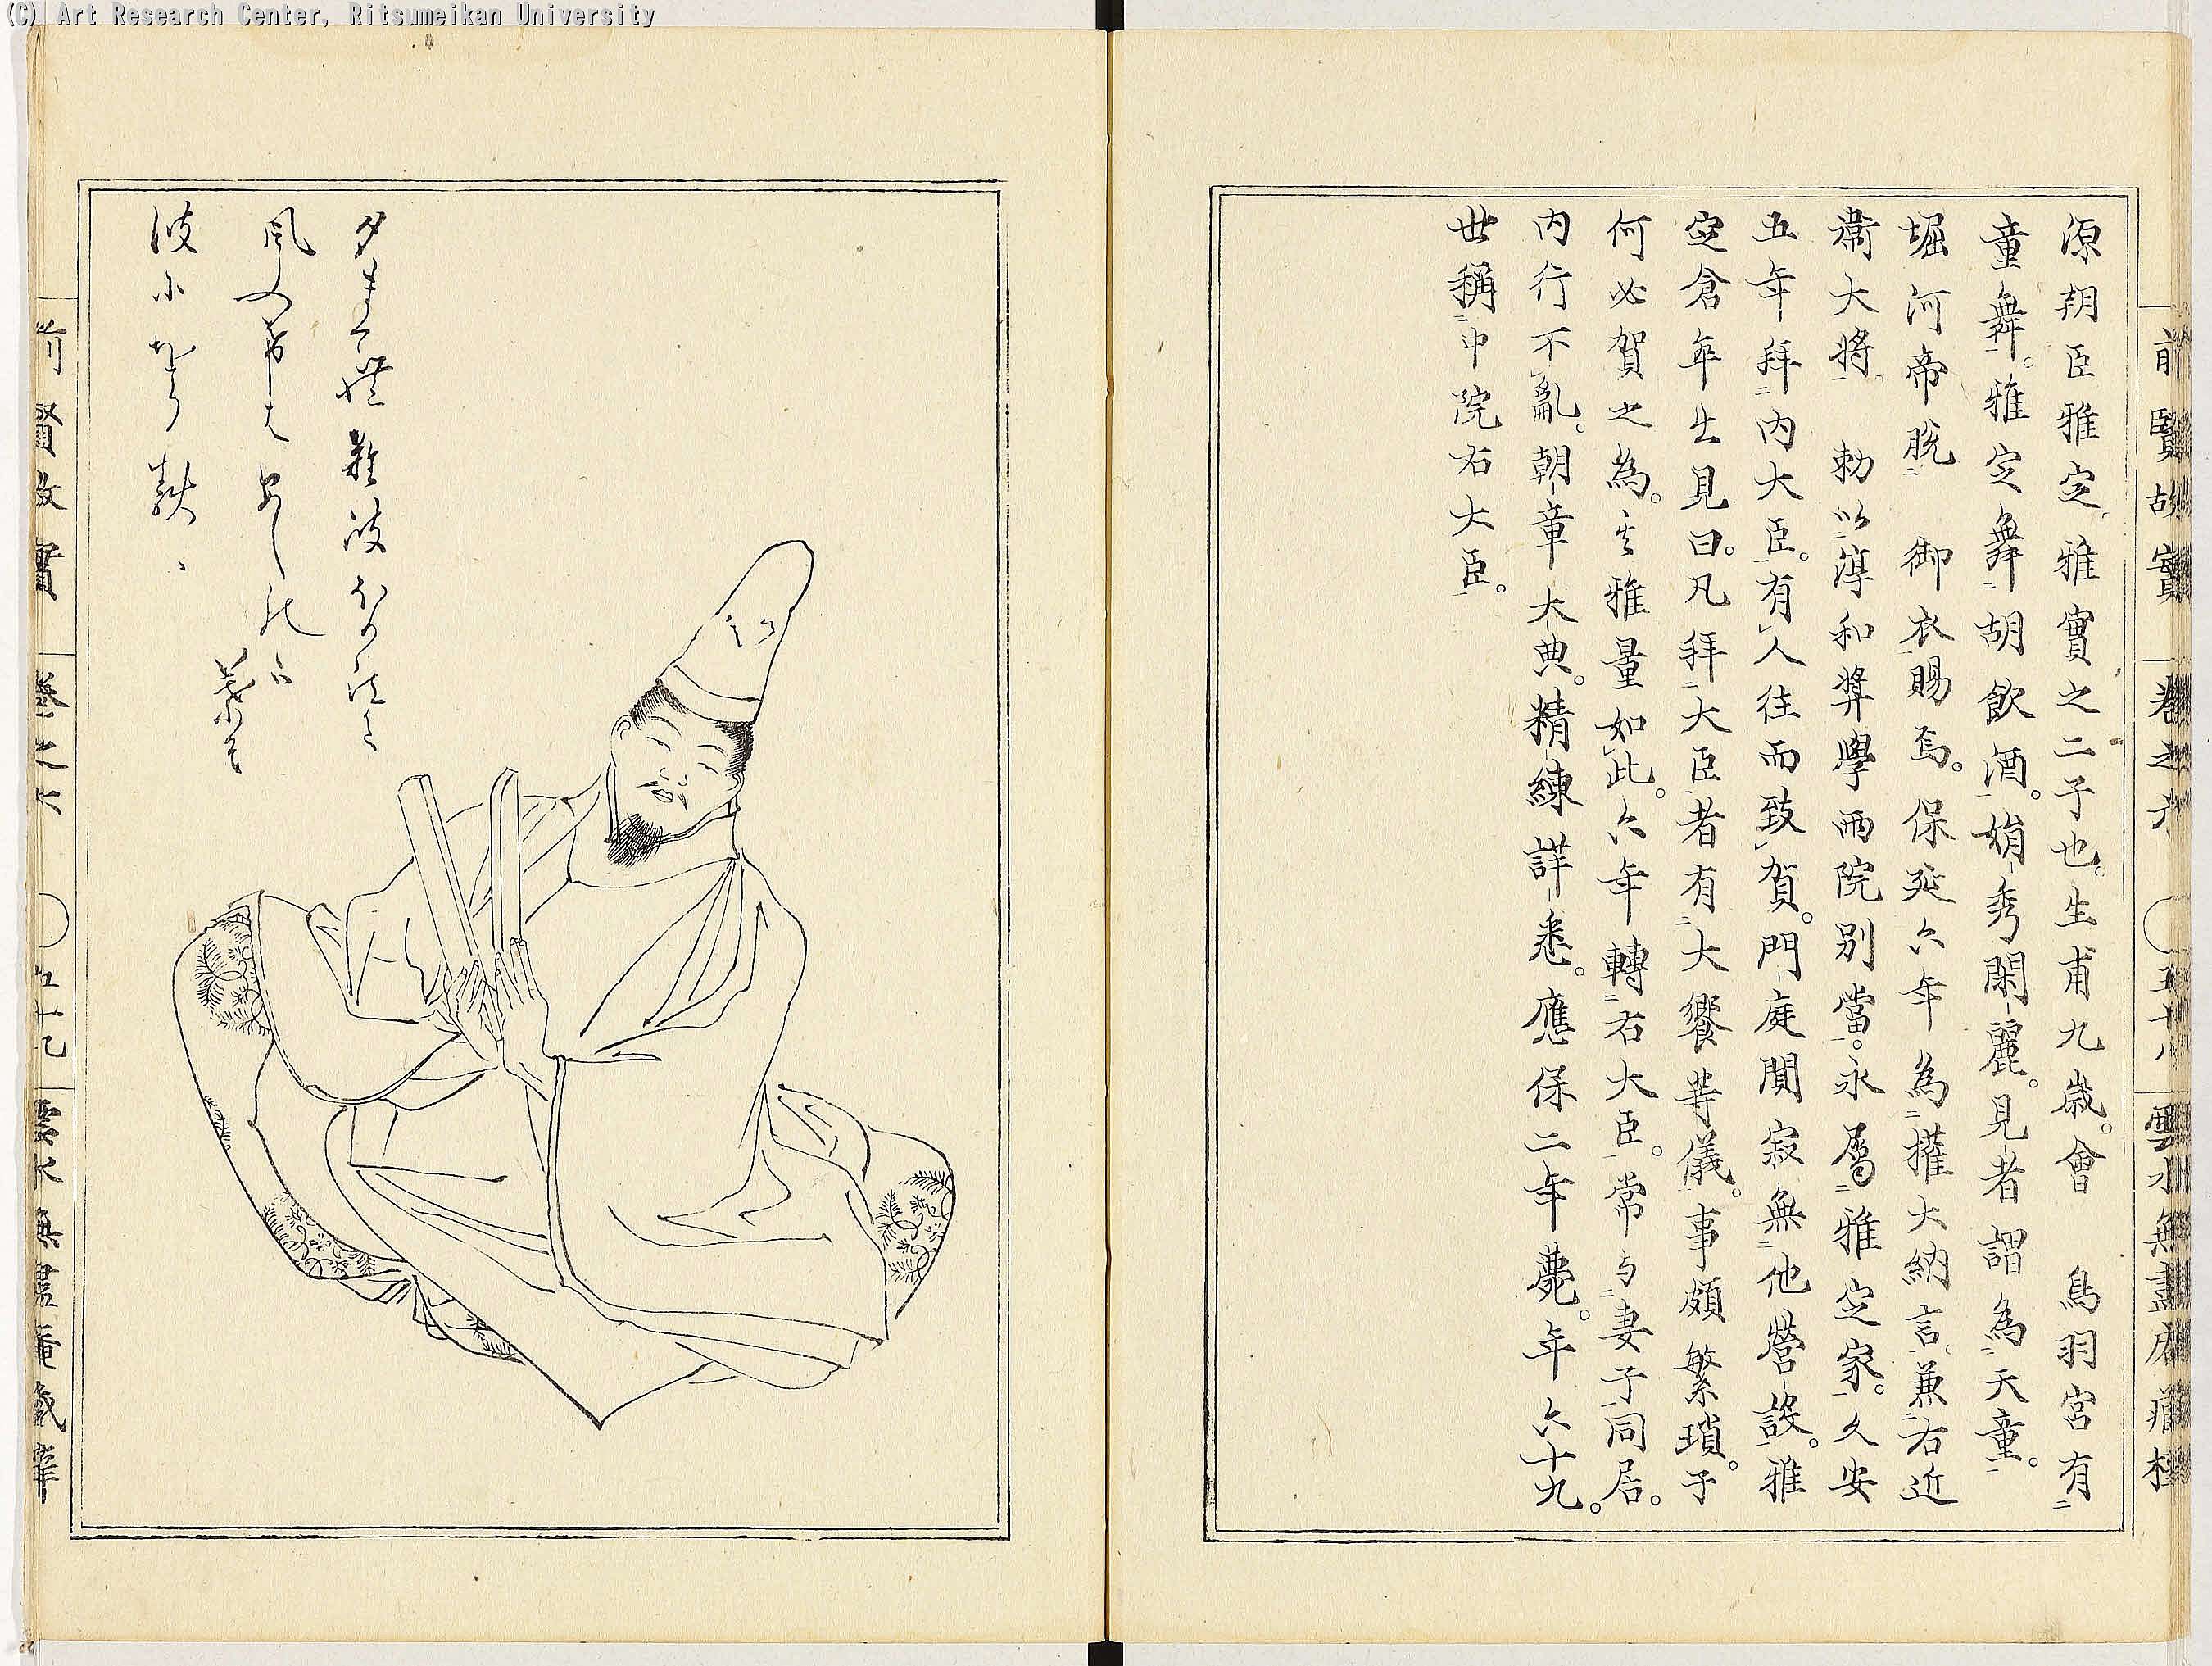 (C) Art Research Center, Ritsumeikan University
前賢故實 卷之六 五十八 雲水無盡庵藏梓
源朝臣雅定、雅實之二子也。生甫九歲。會 鳥羽宮有㆓
童舞㆒。雅定舞㆓胡飲酒㆒。娟秀閑麗。見者謂為㆓天童㆒。
堀河帝脫㆓ 御衣賜焉。保延六年為㆓權大納言、兼㆓右近
衞大將㆒。 勅以淳和奬學兩院別當㆒。永屬㆓雅定家㆒。久安
五年拜㆓內大臣㆒。有人往而致賀。門庭闃寂無㆓他營設㆒。雅
定倉卒出見曰。凡拜㆓大臣㆒者有㆓大饗等儀㆒。事頗繁瑣。子
何必賀之為。其雅量如此。六年轉㆓右大臣㆒。常与㆓妻子㆒同居。
內行不亂。朝章大典。精練詳悉。應保二年薨。年六十九。
世稱㆓中院右大臣㆒。
夕まくれ難波ほり江
風ふけはあしの
波
前賢故實 卷之六 五十九 雲水無盡庵藏梓